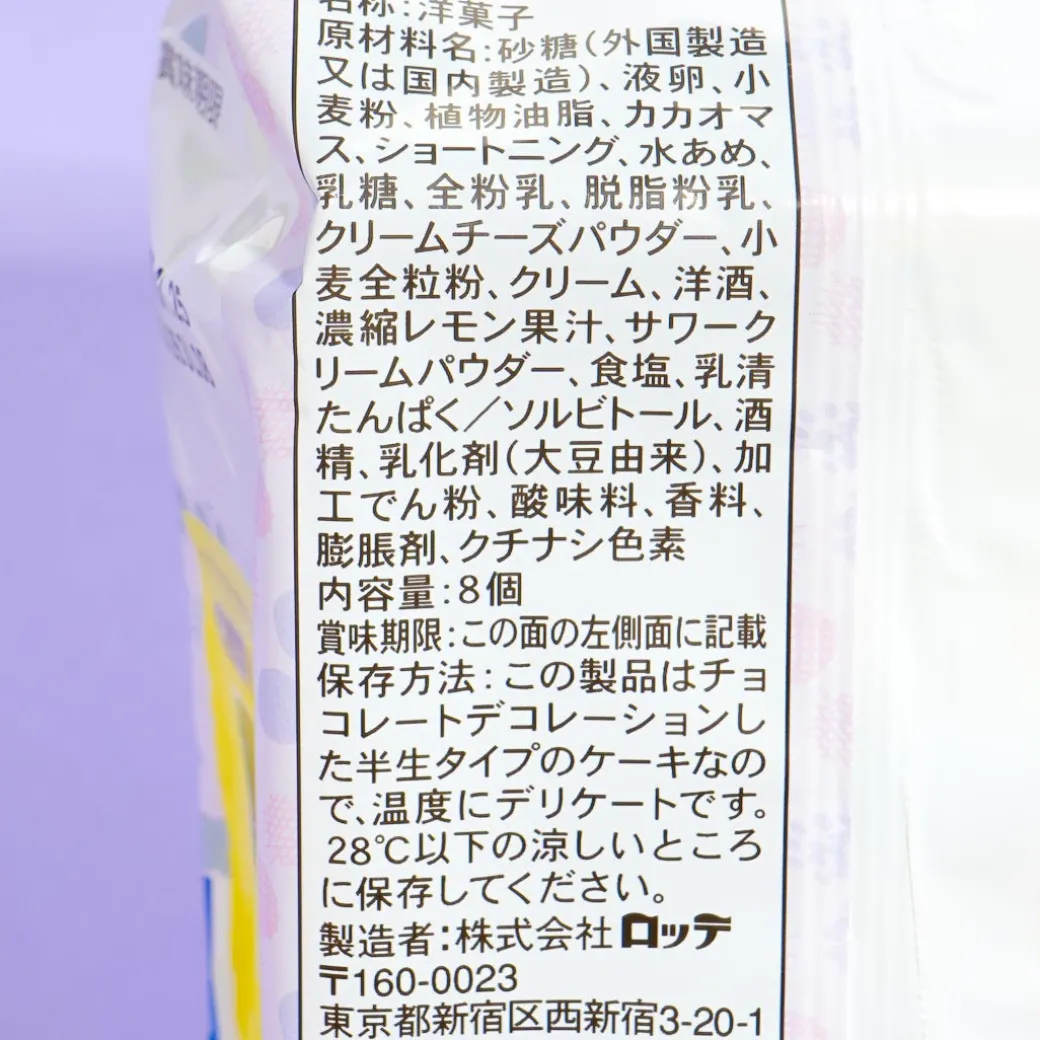 名称:洋菓子
原材料名:砂糖(外国製造
又は国内製造)、液卵、小
麦粉、植物油脂、カカオマ
ス、ショートニング、水あめ、
乳糖、全粉乳、脱脂粉乳、
クリームチーズパウダー、小
麦全粒粉、クリーム、洋酒、
濃縮レモン果汁、サワーク
リームパウダー、食塩、乳清
たんぱく/ソルビトール、酒
精、乳化剤(大豆由来)、加
工でん粉、酸味料、香料、
膨脹剤、クチナシ色素
内容量:8個
賞味期限:この面の左側面に記載
保存方法:この製品はチョ
コレートデコレーションし
た半生タイプのケーキなの
で、温度にデリケートです。
28℃以下の涼しいところ
に保存してください。
製造者:株式会社ロッテ
〒160-0023
東京都新宿区西新宿3-20-1
賞味期限